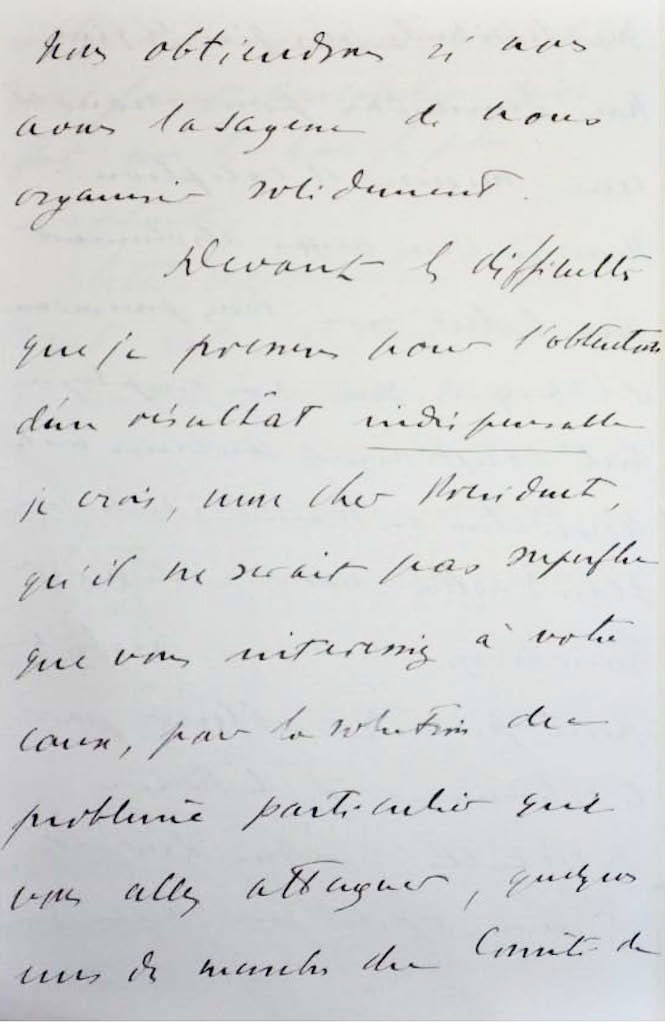 nous obtiendrons si nous
avons la sagesse de nous
organiser solidement.
Devant les difficultés
que je pressens pour l'obtention
d'un résultat indispensable
je crois, mon cher Président,
qu'il ne serait pas superflu
que vous intéressiez à votre
cause, pour la solution du
problème particulier que
vous allez attaquer, quelques
uns des membres du Comité de